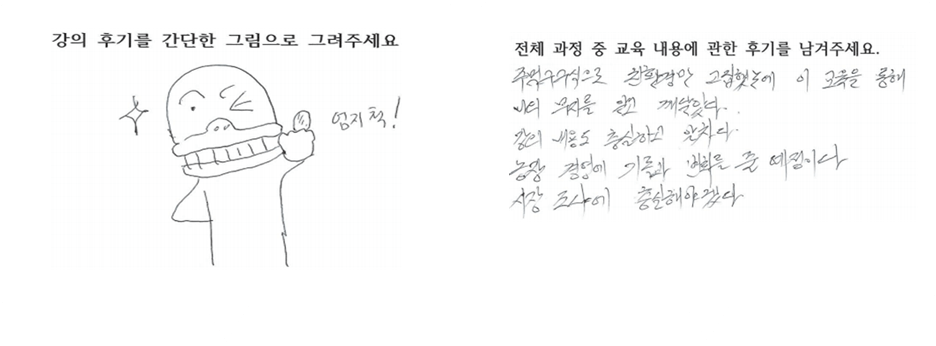 강의 후기를 간단한 그림으로 그려주세요
엄지척!
전체 과정 중 교육 내용에 관한 후기를 남겨주세요.
주먹구구식으로 친환경만 고집했는데 이 교육을 통해
깨달았다..
강의 내용도 충실하고 알차다.
농장 경영에 변화를 줄 예정이다
시장 조사에 충실해야겠다